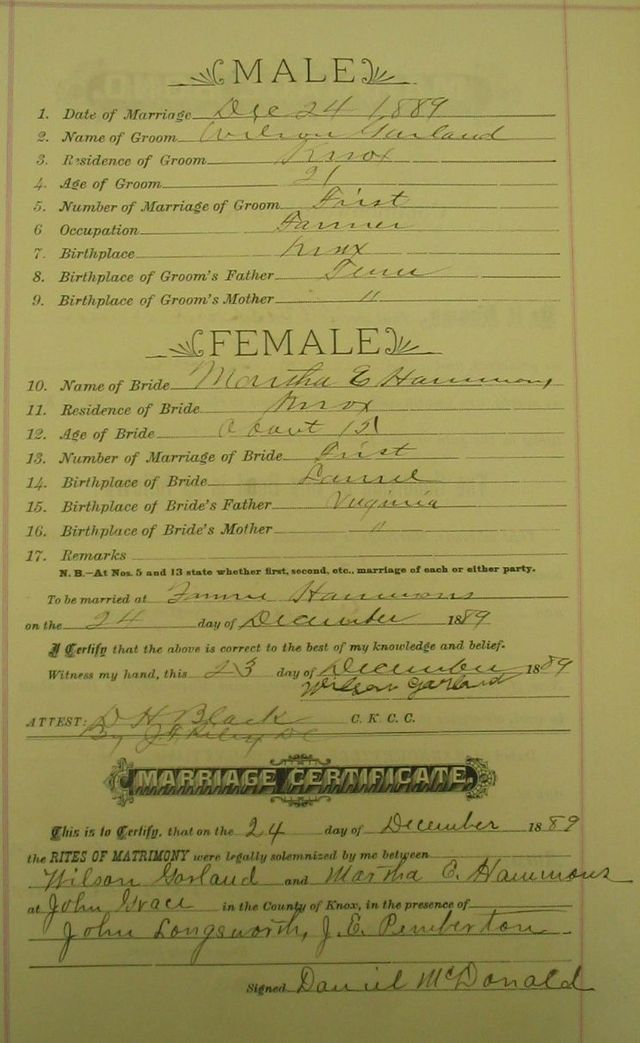 MALE
1. Date of Marriage Dec 24 1889
2. Name of Groom Wilson Garland
3. Residence of Groom Knox
4. Age of Groom 21
5. Number of Marriage of Groom First
6 Occupation Farmer
7. Birthplace Knox
8. Birthplace of Groom's Father Tenn
9. Birthplace of Groom's Mother "
FEMALE
10. Name of Bride Martha E Hammons
11. Residence of Bride Knox
12. Age of Bride About 15
13. Number of Marriage of Bride First
14. Birthplace of Bride Laurel
15. Birthplace of Bride's Father Virginia
16. Birthplace of Bride's Mother "
17. Remarks
N. B.—At Nos. 5 and 13 state whether first, second, etc., marriage of each or either party.
To be married at Hammons
on the 24 day of December 1889
I Certify that the above is correct to the best of my knowledge and belief.
Witness my hand, this 23 day of December 1889
Wilson Garland
ATTEST: D H Black C. K. C. C.
By DC
MARRIAGE CERTIFICATE.
This is to Certify, that on the 24 day of December 1889
the RITES OF MATRIMONY were legally solemnized by me between
Wilson Garland and Martha E. Hammons
at John Grace in the County of Knox, in the presence of
John Longsworth, J. E. Pemberton
Signed Daniel McDonald